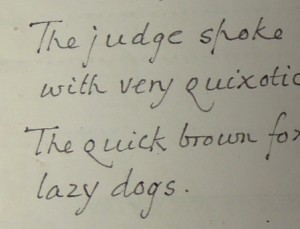 The judge spoke
with very quixotic
The quick brown fox
lazy dogs.